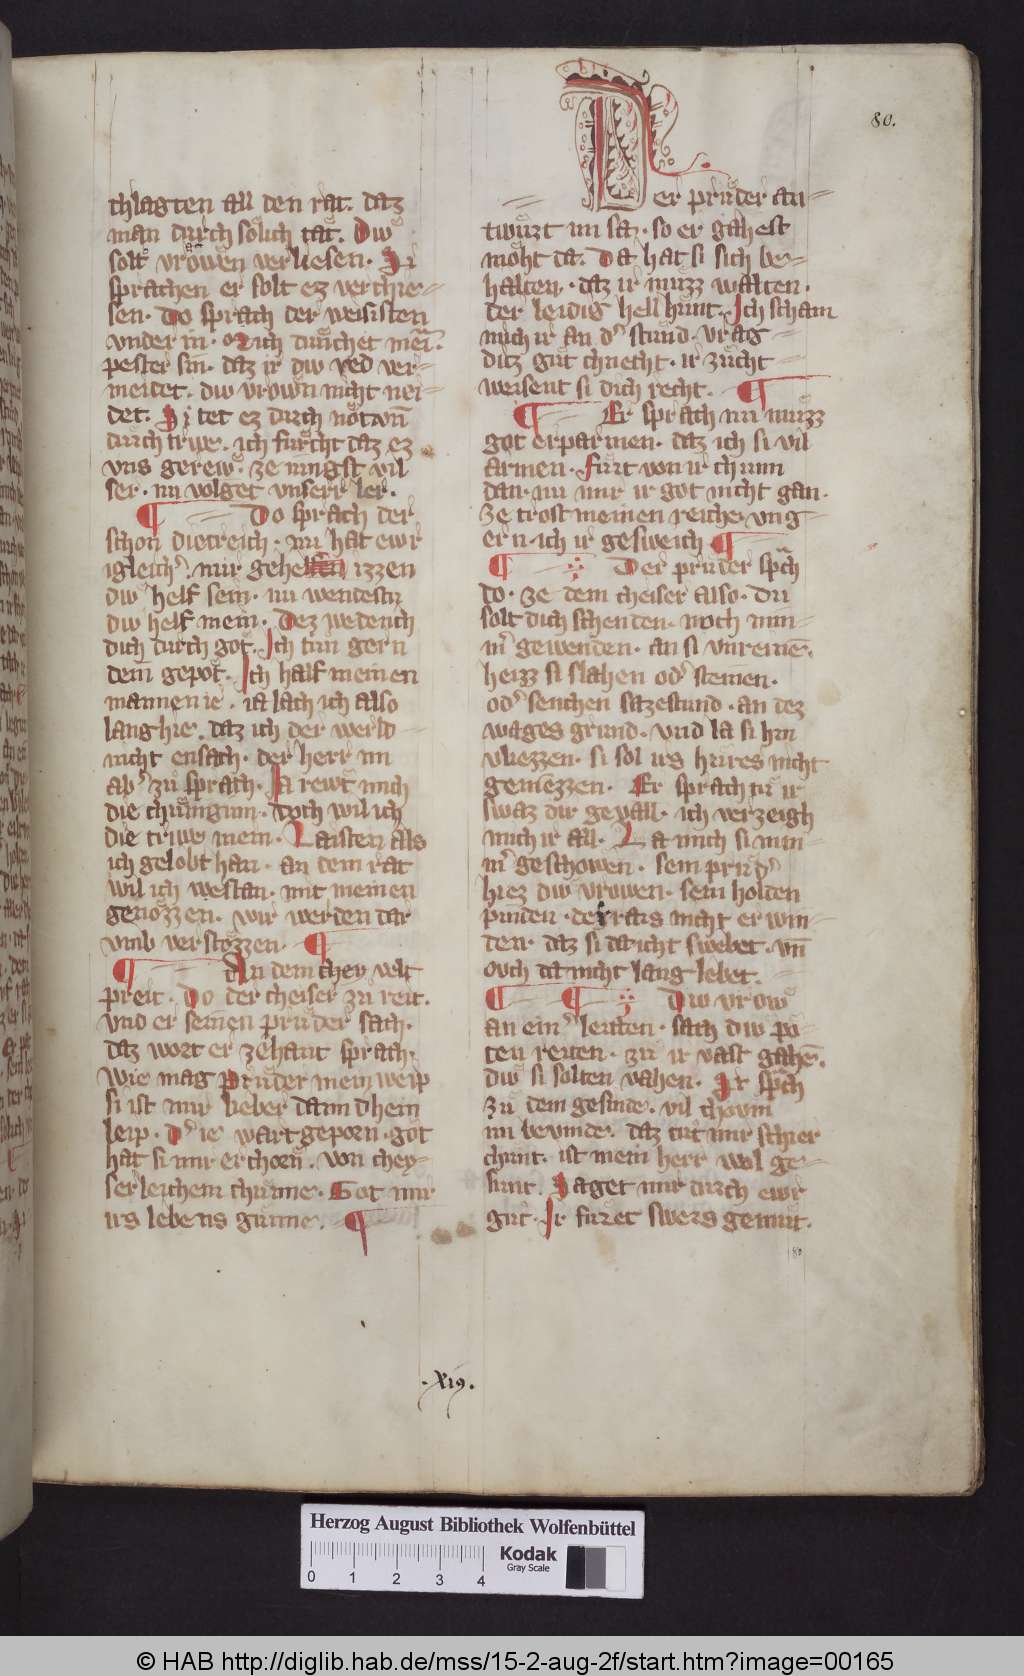 80.
chlagten all den rat. daz
man durch sölich tat. Diw
solt vrowen verliesen. Si
sprachen er solt ez verchie-
sen. Do sprach der weisisten
vnder in. dunchet
pester sin. daz ir diw red ver-
meidet. diw vrown nicht nei-
det. Si tet ez durch nötwn̄
durch triwe. ich fürcht daz ez
vns gerew. ze iungst vil
ser. nu volget vnserr ler.
Do sprach der
schon dietreich. nu hat ewr
igleich mir izzen
diw helf sein. nu wendestu
diw helf mein. Dez wedench
dich durch got. Ich tun gern
dein gepot. Ich half meinen
mannen ie. ia lach ich also
lang hie. daz ich der werld
nicht ensach. der herr nu
ab zů sprach. Ja rewt mich
die chünginn. doch wil ich
die triwe mein. Laisten als
ich gelobt han. an dem rat
wil ich westan. mit meinen
genözzen. wir werden dar
vmb verstözzen.
An dem velt
preit. Do der cheiser zů reit.
vnd er seinen průder sach.
daz wort er zehant sprach.
Wie mag Průder mein weip
si ist mir lieber dann dhein
leip. D ie wart geporn. got
hat si mir erchorn. von chey-
serleichem chünne. Got mir
irs lebens günne.
Der průder an-
twürt im sa. so er gahest
möht da. Da hat si sich be-
halten. daz ir müzz walten.
der leidig hellhunt. Ich scham
mich ir an d stund. vrag
ditz gut chnecht. ir zücht
weisent si dich recht.
Er sprach nu müzz
got erparmen. daz ich si vil
armen. fürt von ir chunn
dan. nu mir ir got nicht gan.
ze trost meinen reiche. vng-
ern. ich ir gesweich
Der průder sp̄ch
do. ze dem cheiser also. du
solt dich schenden. noch min-
n gewenden. an si vnreine.
heizz si slahen od steinen.
od senchen sazestund. an dez
wages grund. vnd la si hin
vliezzen. si sol irs hures nicht
geniezzen. Er sprach nu ir
swaz dir gevall. ich verzeigh
mich ir all. La mich si nim-
m geschowen. sein průd
hiez diw vrowen. sein holden
pinden. nicht erwin-
den. daz si da icht swebet. vn̄
ovch da nicht lang lebet.
Diw vrow
an ein leuten. sach diw po-
ten reiten. zu ir vast gahē.
diw si solten vahen. Ir sp̄ch
zu dem gesinde. vil chovm
nu bevinde. daz tut mir schier
chunt. ist mein herr wol ge-
sunt. Saget mir durch ewr
gut. Ir füret swers gemut.
80
.XIX.
Herzog August Bibliothek Wolfenbüttel
0 1 2 3 4
Kodak
Gray Scale
© HAB http://diglib.hab.de/mss/15-2-aug-2f/start.htm?image=00165